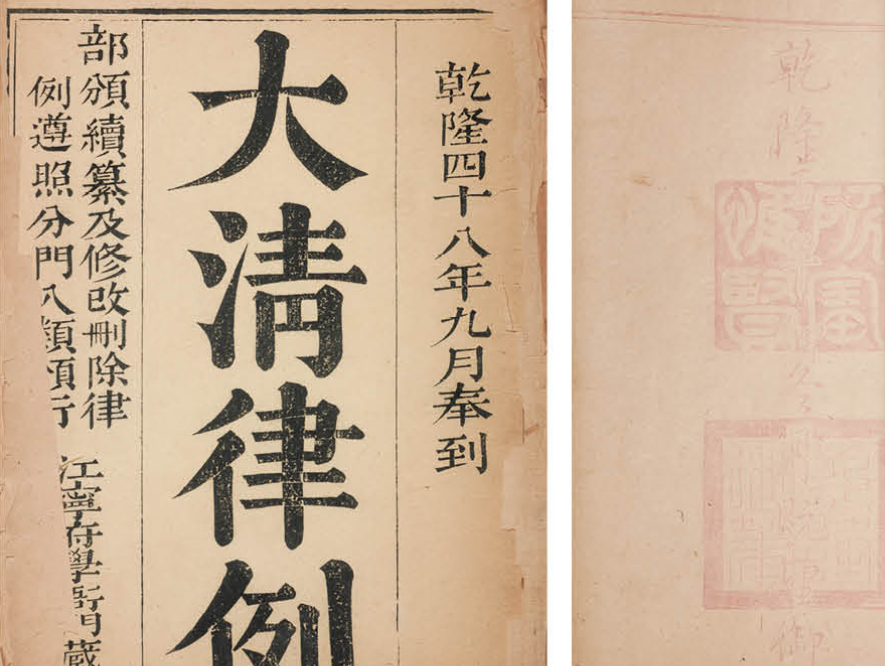 乾隆四十八年九月奉到
大清律例
部頒續纂及修改刪除律
例遵照分門入類頒行
江寧府學 藏
乾隆